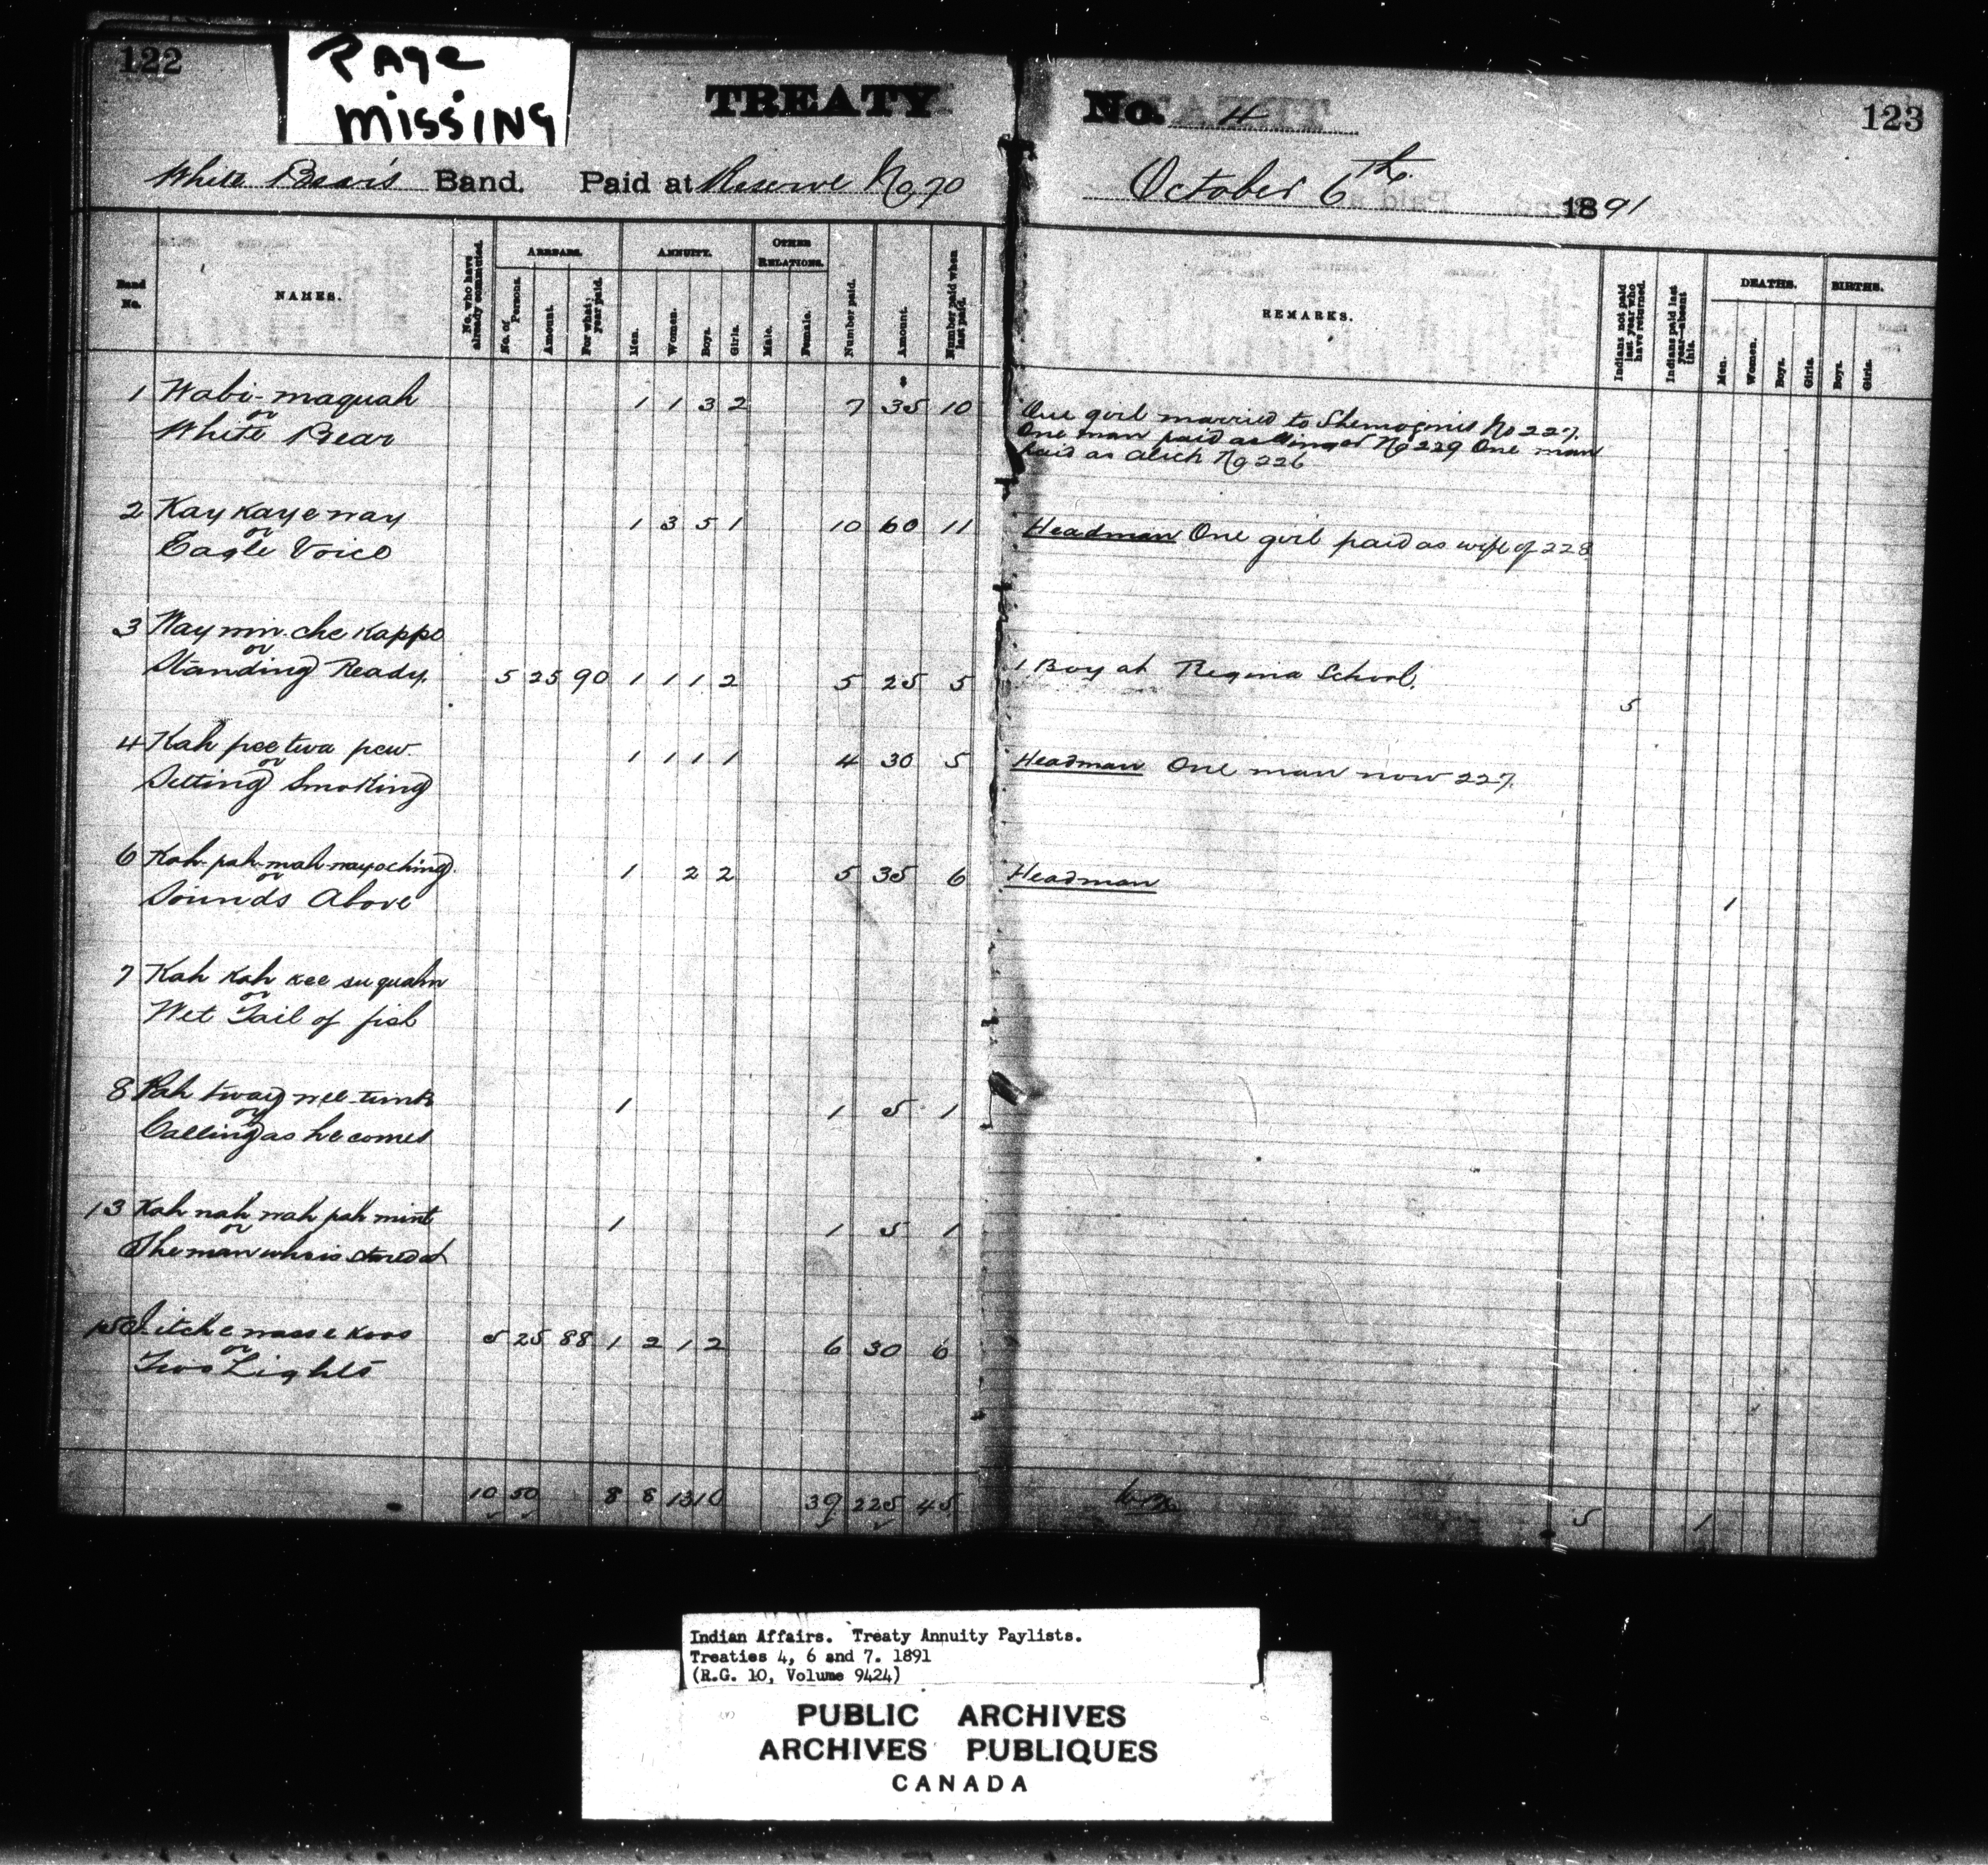 122
PAGE
MISSING
TREATY
No. 4
123
White Bear's Band. Paid at Reserve No 70
October 6th 1891
Band No.
NAMES.
No. who have already commuted.
ARREARS.
No. of Persons.
Amount.
For what year paid.
ANNUITY.
Men.
Women.
Boys.
Girls.
OTHER RELATIONS.
Male.
Female.
Number paid.
Amount.
Number paid when last paid.
REMARKS.
Indians not paid last year who have returned.
Indians paid last year—absent this.
DEATHS.
Men.
Women.
Boys.
Girls.
BIRTHS.
Boys.
Girls.
1 Wabi-maquah 1 1 3 2 7 35 10
or
White Bear
One girl married to Shemoginis No 227.
One man paid as No 229 One man
paid as No 226
2 Kay kay e way 1 3 5 1 10 60 11
or
Eagle Voice
Headman One girl paid as wife of 228
3 Way win che Kappo
or
Standing Ready. 5 25 90 1 1 1 2 5 25 5
1 Boy at Regina School. 5
4 Kah pee twa pew. 1 1 1 1 4 30 5
or
Sitting Smoking
Headman One man now 227.
6 Kah-pah-mah-wayoching. 1 2 2 5 35 6
or
Sounds Above
Headman 1
7 Kah Kah kee su quahn
or
Wet Tail of fish
8 Pah tway wee-tunk 1 1 5 1
or
Calling as he comes
13 Kah nah wah pah mint 1 1 5 1
or
The man who is stared at
15 Sitche wasse koos 5 25 88 1 2 1 2 6 30 6
or
Two Lights
10 50 8 8 13 10 39 225 45
5 1
Indian Affairs. Treaty Annuity Paylists.
Treaties 4, 6 and 7. 1891
(R.G. 10, Volume 9424)
PUBLIC ARCHIVES
ARCHIVES PUBLIQUES
CANADA